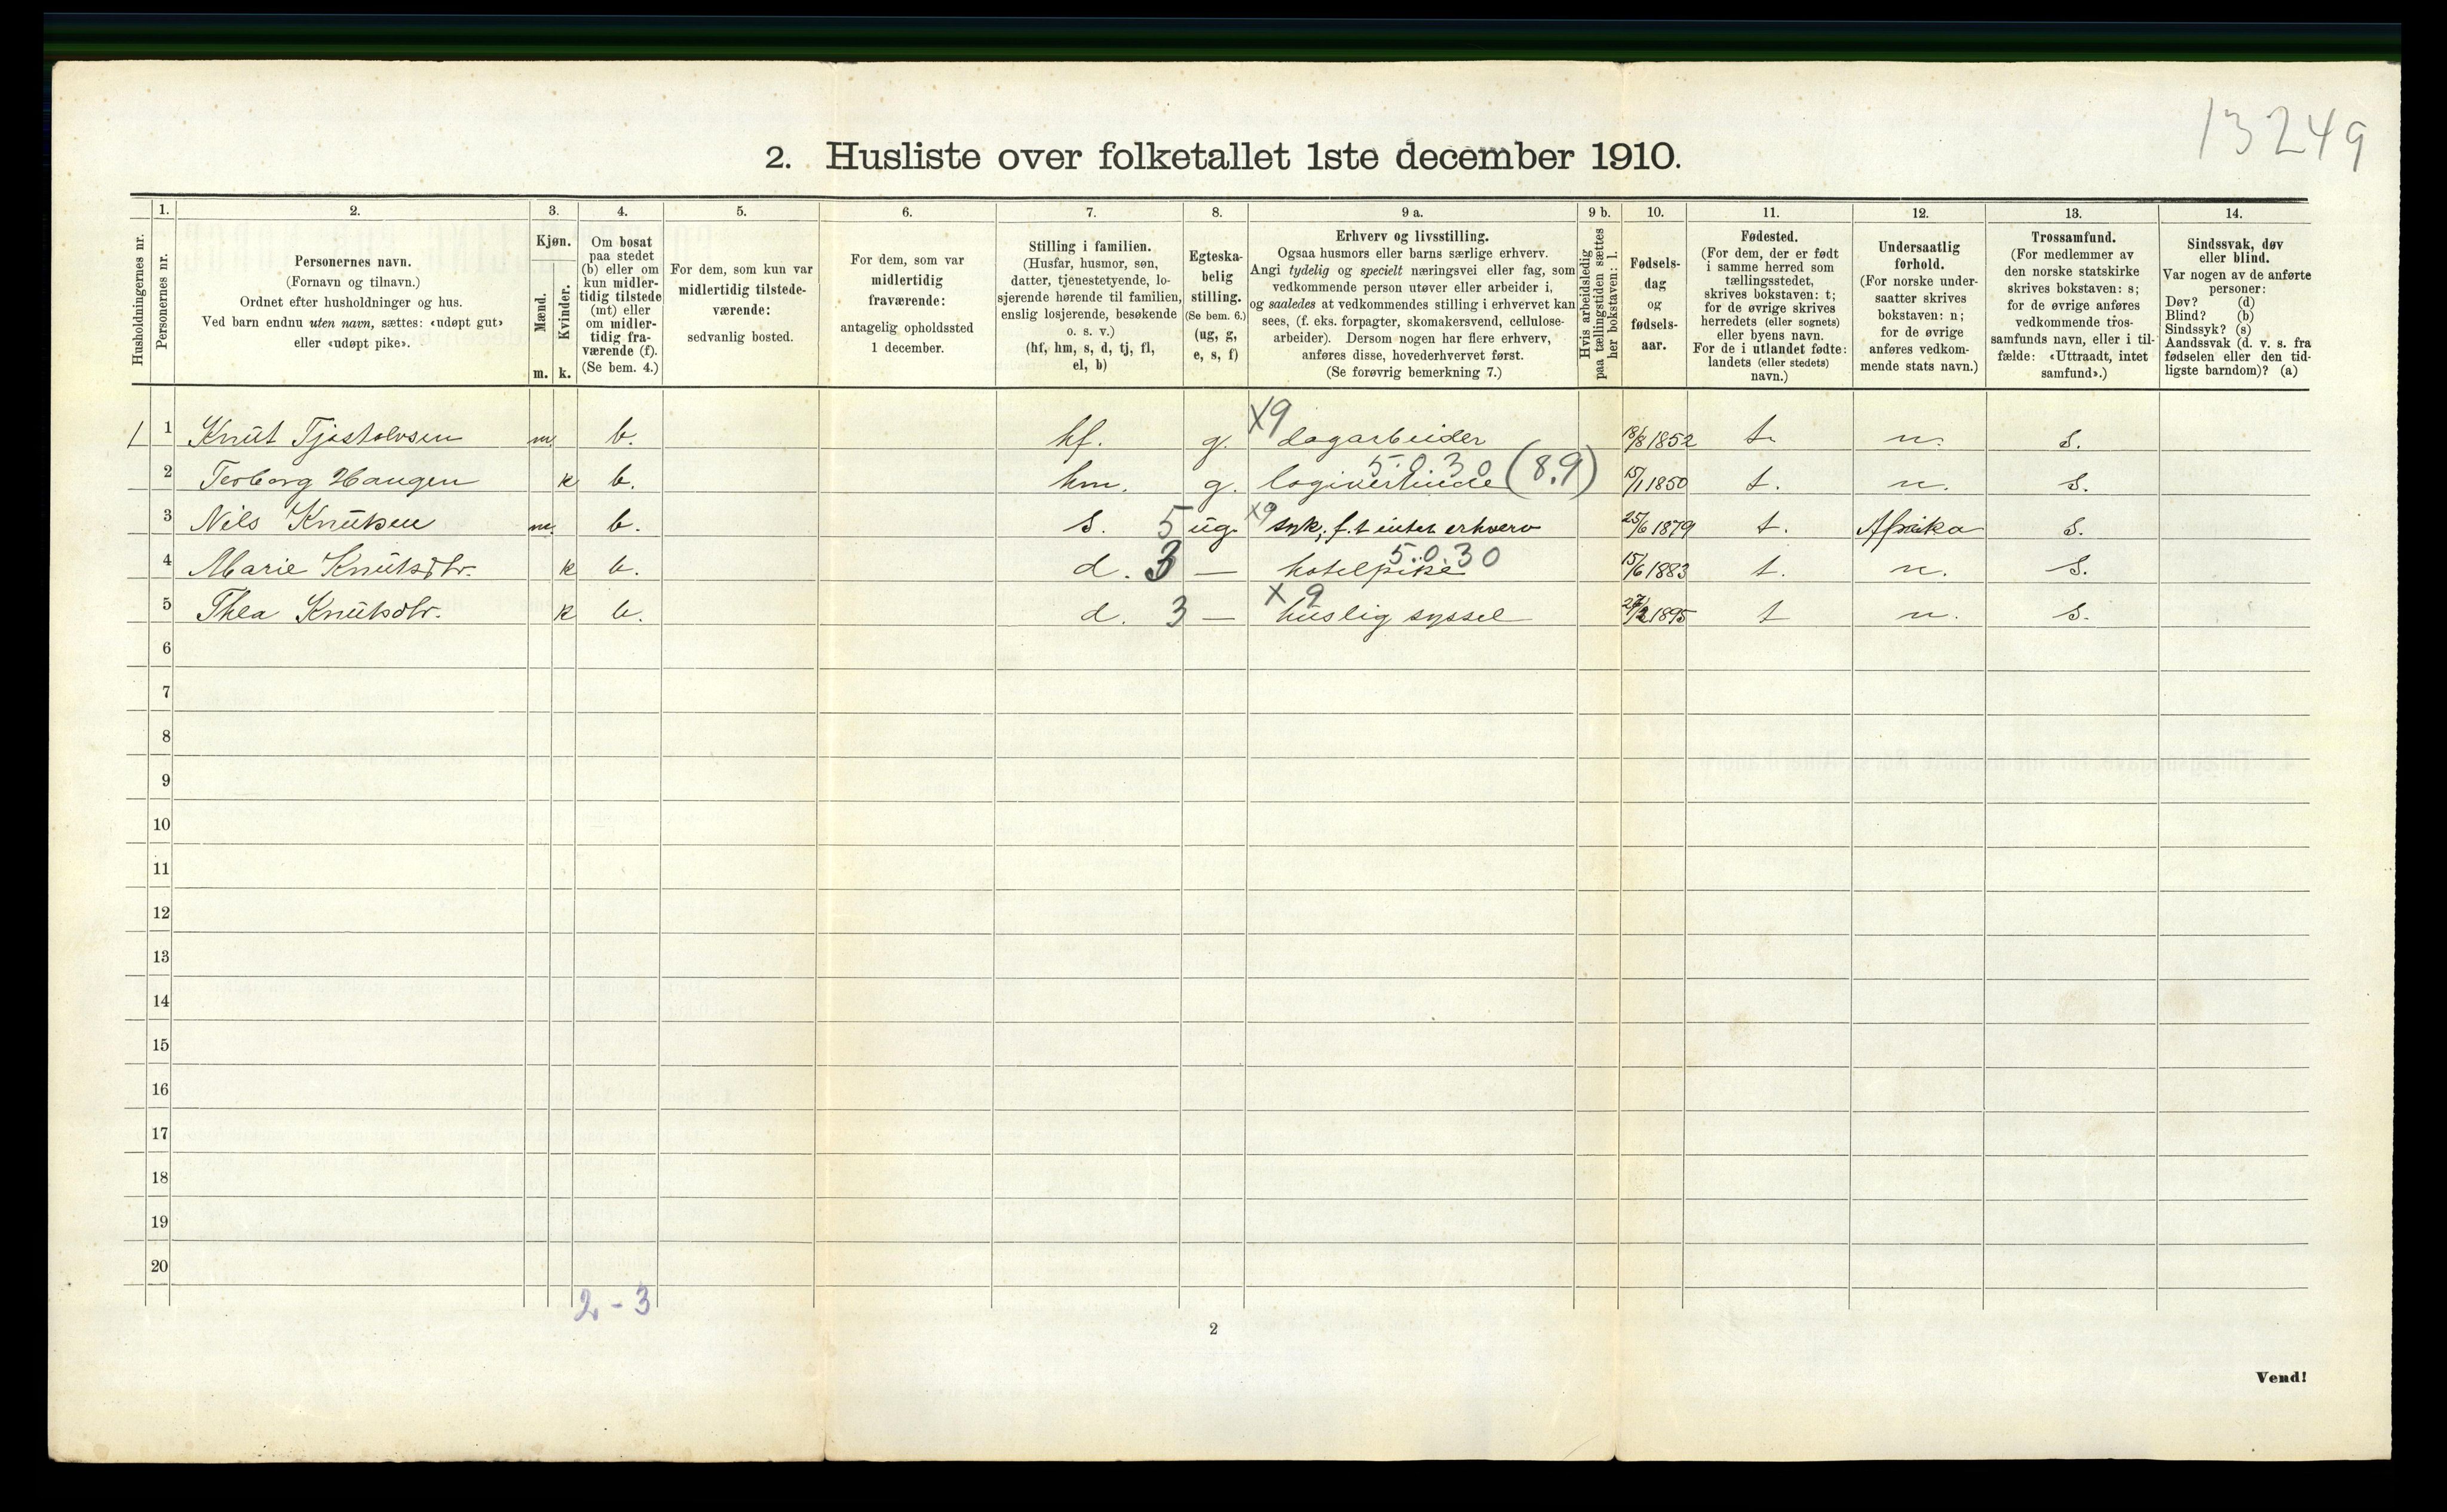 13249
2. Husliste over folketallet 1ste december 1910.
Husholdningernes nr.
1.
Personernes nr.
2.
Personernes navn.
(Fornavn og tilnavn.)
Ordnet efter husholdninger og hus.
Ved barn endnu uten navn, sættes: «udøpt gut»
eller «udøpt pike».
3.
Kjøn.
Mænd.
m.
Kvinder.
k.
4.
Om bosat
paa stedet
(b) eller om
kun midler-
tidig tilstede
(mt) eller
om midler-
tidig fra-
værende (f).
(Se bem. 4.)
5.
For dem, som kun var
midlertidig tilstede-
værende:
sedvanlig bosted.
6.
For dem, som var
midlertidig
fraværende:
antagelig opholdssted
1 december.
7.
Stilling i familien.
(Husfar, husmor, søn,
datter, tjenestetyende, lo-
sjerende hørende til familien,
enslig losjerende, besøkende
o. s. v.)
(hf, hm, s, d, tj, fl,
el, b)
8.
Egteska-
belig
stilling.
(Se bem. 6.)
(ug, g,
e, s, f)
9 a.
Erhverv og livsstilling.
Ogsaa husmors eller barns særlige erhverv.
Angi tydelig og specielt næringsvei eller fag, som
vedkommende person utøver eller arbeider i,
og saaledes at vedkommendes stilling i erhvervet kan
sees, (f. eks. forpagter, skomakersvend, cellulose-
arbeider). Dersom nogen har flere erhverv,
anføres disse, hovederhvervet først.
(Se forøvrig bemerkning 7.)
9 b.
Hvis arbeidsledig
paa tællingstiden sættes
her bokstaven: l.
10.
Fødsels-
dag
og
fødsels-
aar.
11.
Fødested.
(For dem, der er født
i samme herred som
tællingsstedet,
skrives bokstaven: t;
for de øvrige skrives
herredets (eller sognets)
eller byens navn.
For de i utlandet fødte:
landets (eller stedets)
navn.)
12.
Undersaatlig
forhold.
(For norske under-
saatter skrives
bokstaven: n;
for de øvrige
anføres vedkom-
mende stats navn.)
13.
Trossamfund.
(For medlemmer av
den norske statskirke
skrives bokstaven: s;
for de øvrige anføres
vedkommende tros-
samfunds navn, eller i til-
fælde: «Uttraadt, intet
samfund».)
14.
Sindssvak, døv
eller blind.
Var nogen av de anførte
personer:
Døv? (d)
Blind? (b)
Sindssyk? (s)
Aandssvak (d. v. s. fra
fødselen eller den tid-
ligste barndom)? (a)
X9
1 1 Knut Tjostolvsen m b. hf. g. dagarbeider 18/8 1852 t. n. s.
5.0.30 (8.9)
2 Torborg Haugen k b. hm. g. logivertinde 15/1 1850 t. n. s.
3 Nils Knutsen m. b. s. 5 ug. X9 syk, f.t intet erhverv 25/6 1879 t. Afrika s.
5.0.30
4 Marie Knutsdtr. k b. d. 3 — hotelpike 15/6 1883 t. n. s.
X 9
5 Thea Knutsdtr. k b. d. 3 — huslig syssel 1895 t n. s.
6
7
8
9
10
11
12
13
14
15
16
17
18
19
20
2 - 3
2
Vend!